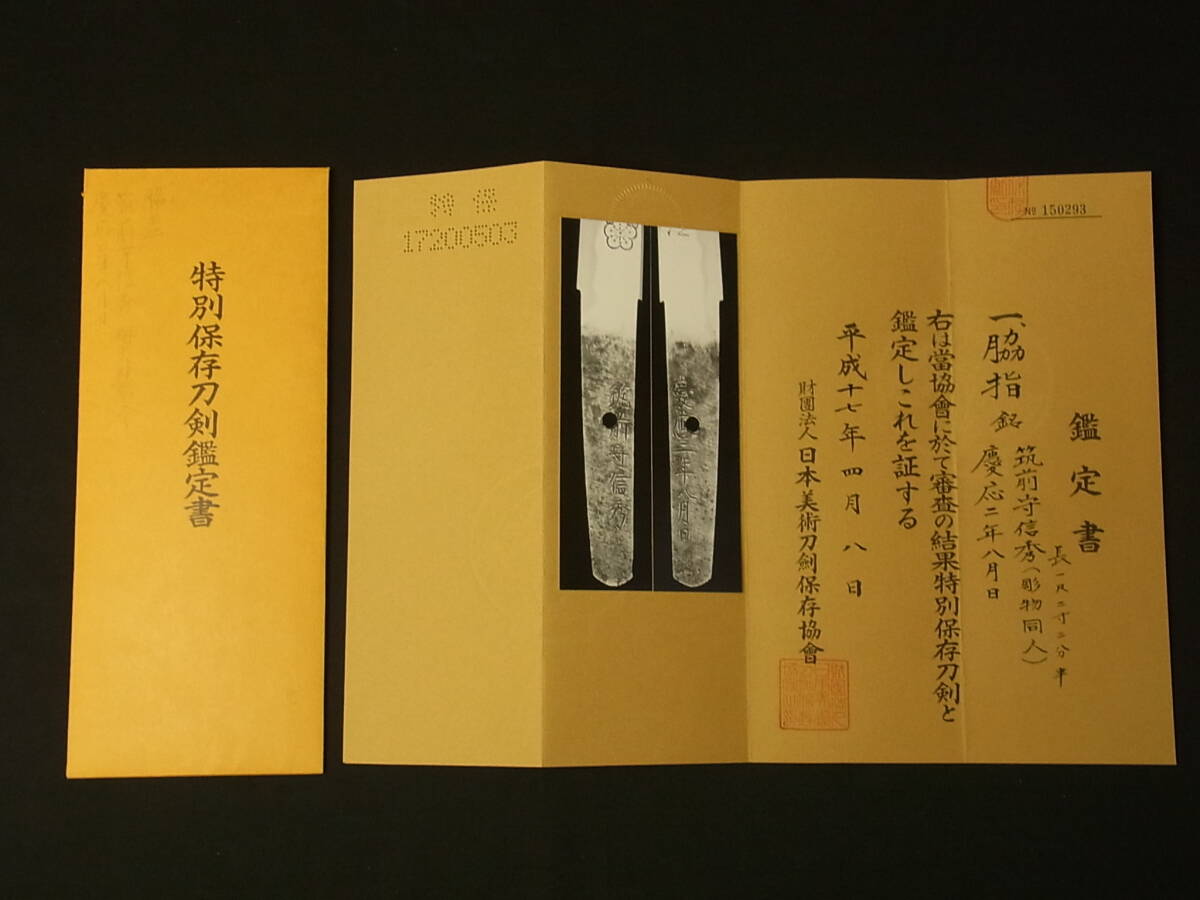 特別保存刀剣鑑定書
特保
17200503
筑前守信秀
慶應二年八月日
№ 150293
鑑定書
長一尺二寸二分半
一、脇指 銘 筑前守信秀(彫物同人)
慶応二年八月日
右は當協會に於て審査の結果特別保存刀剣と
鑑定しこれを証する
平成十七年四月八日
財團法人日本美術刀劍保存協會